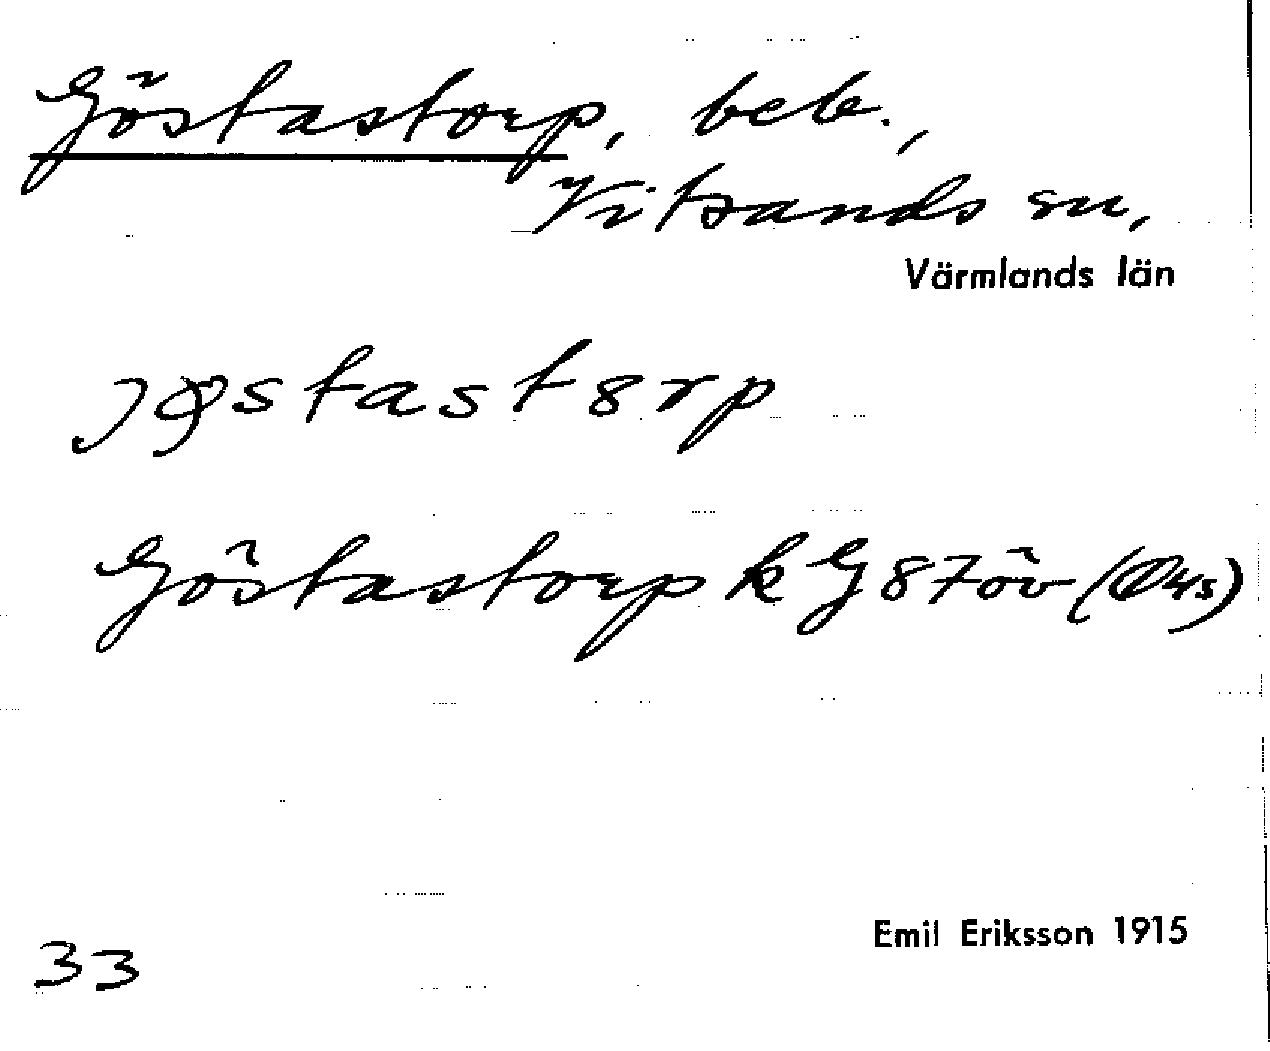 Göstastorp, beb.,
Vitsands sn,
Värmlands län
Göstastorp k G87öv
Emil Eriksson 1915
33